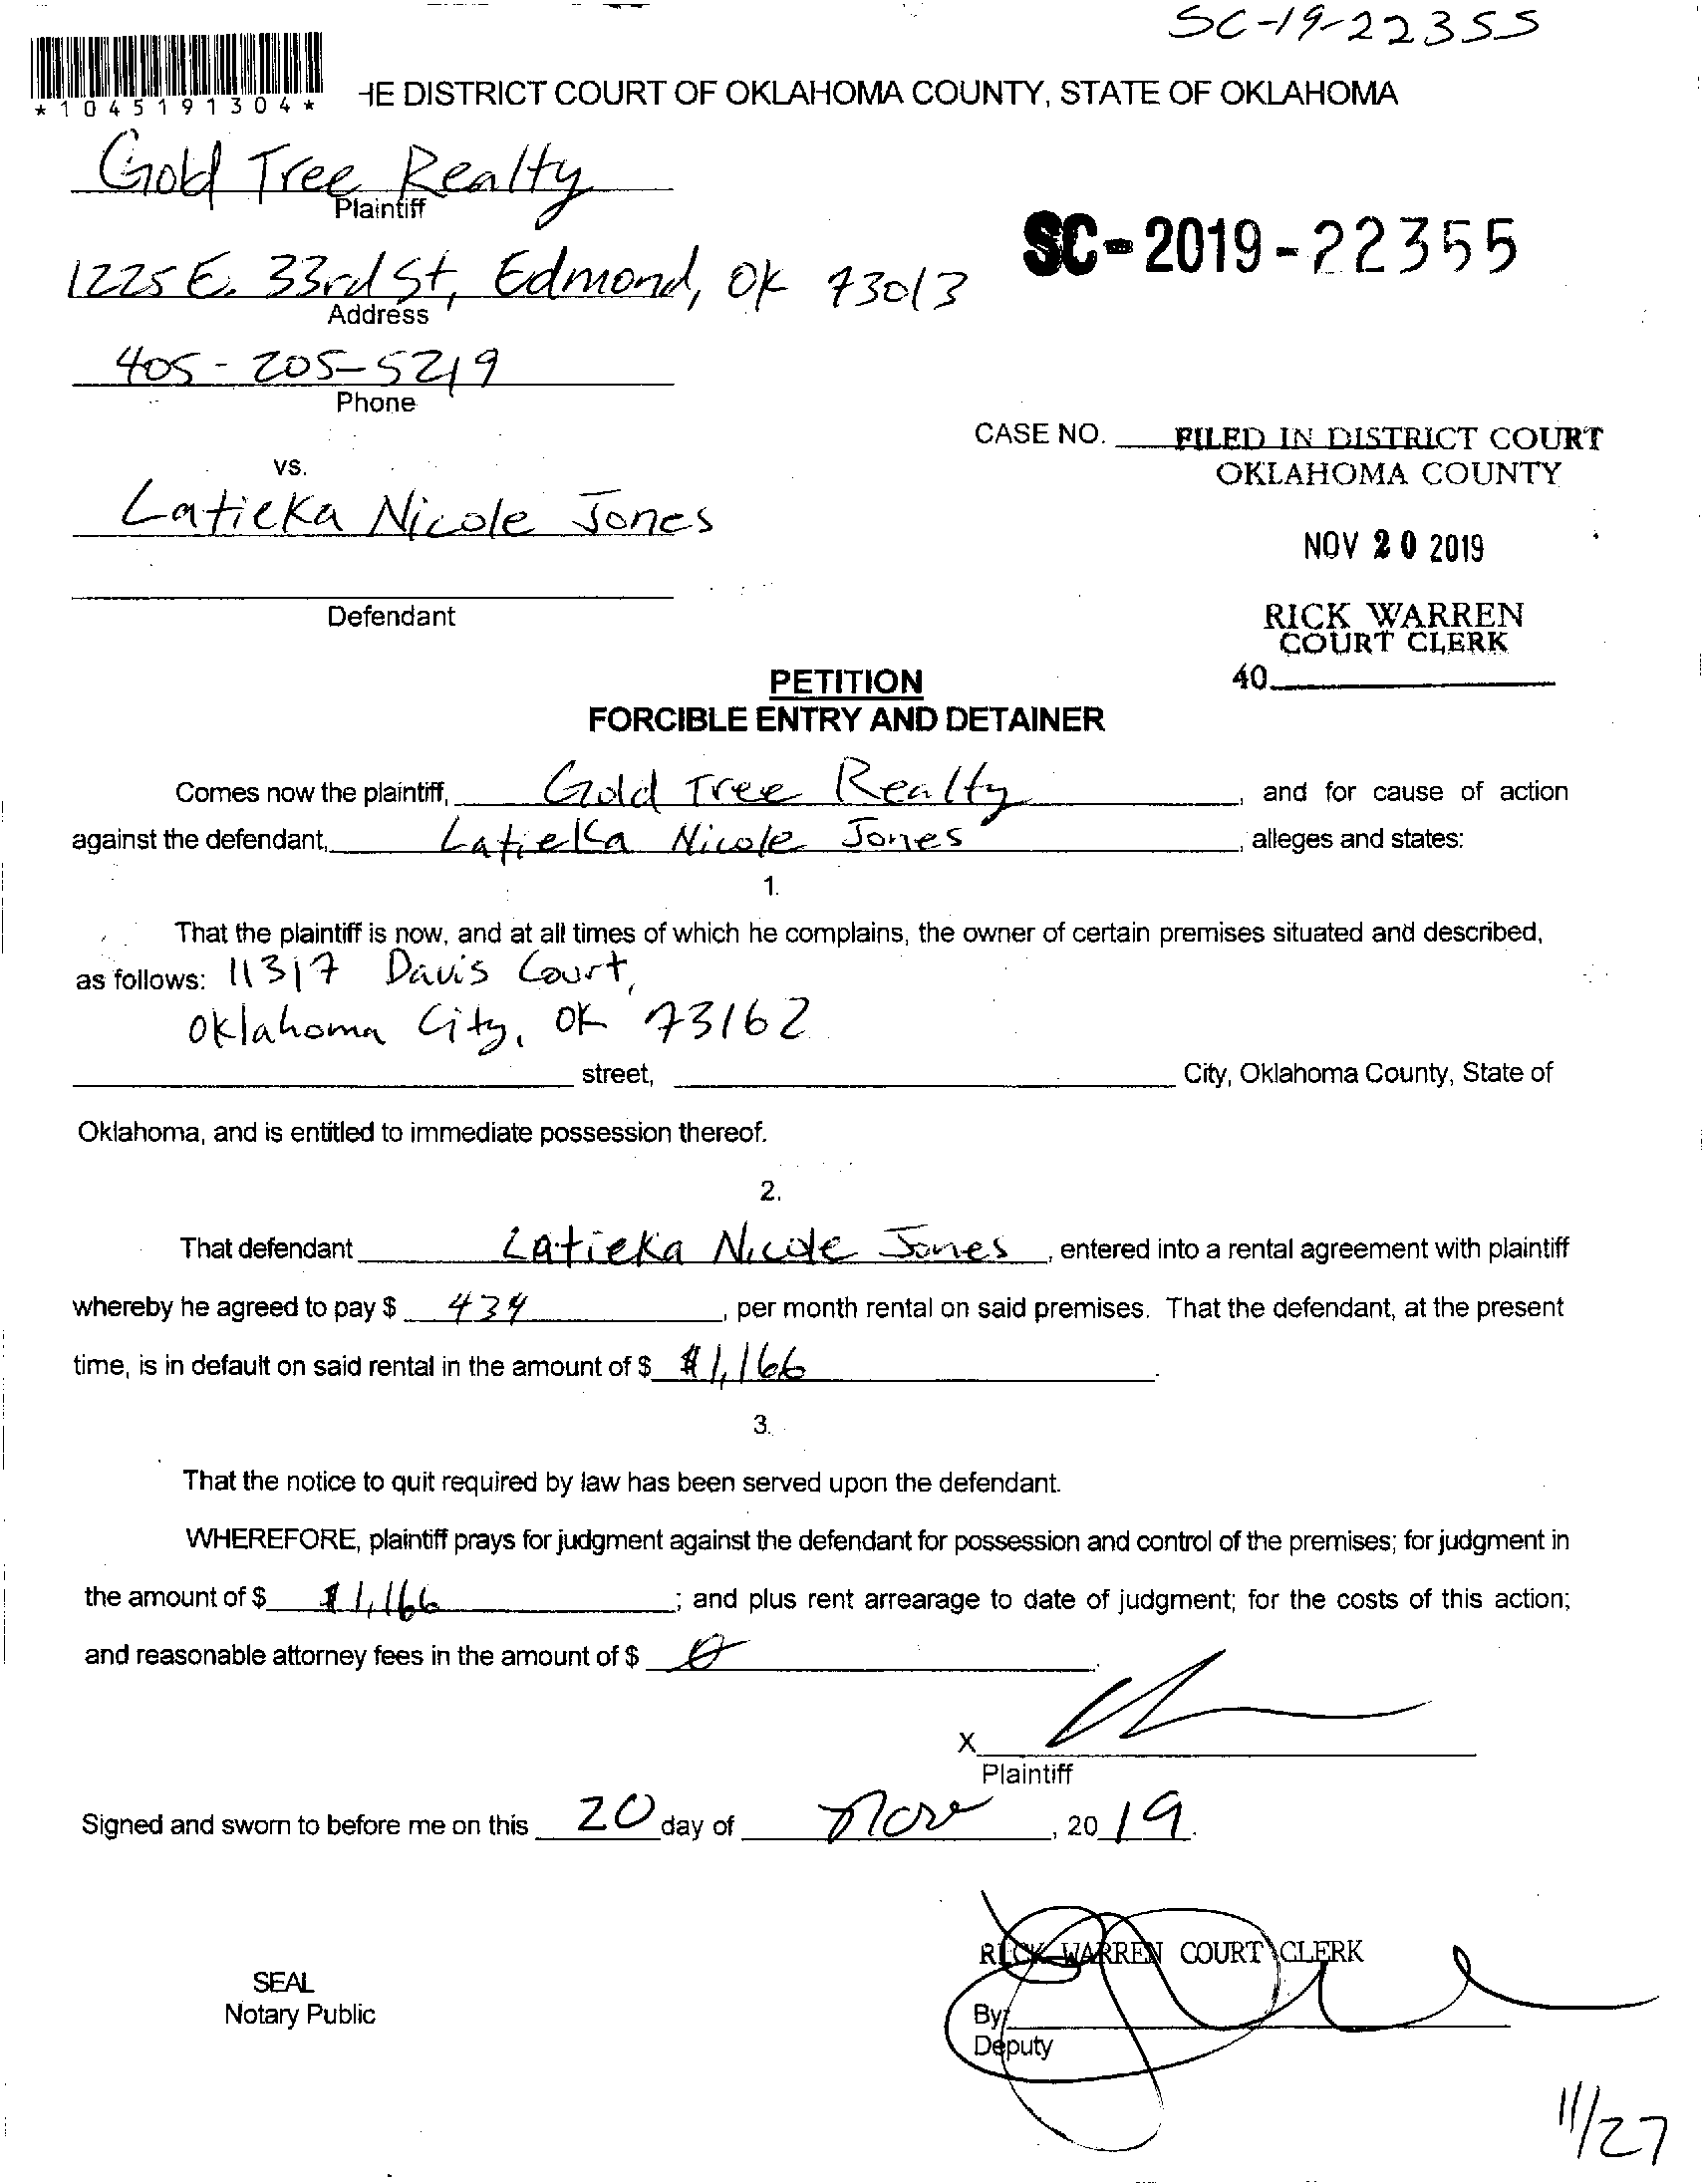 SC-19-22355
*1045191304*
HE DISTRICT COURT OF OKLAHOMA COUNTY, STATE OF OKLAHOMA
Gold Tree Realty
Plaintiff
SC-2019-22355
1225 E. 33rd St, Edmond, OK 73013
Address
405-205-5219
Phone
CASE NO. FILED IN DISTRICT COURT
OKLAHOMA COUNTY
vs.
Latieka Nicole Jones
NOV 20 2019
Defendant
RICK WARREN
COURT CLERK
40
PETITION
FORCIBLE ENTRY AND DETAINER
Comes now the plaintiff, Gold Tree Realty, and for cause of action
against the defendant, Latieka Nicole Jones, alleges and states:
1.
That the plaintiff is now, and at all times of which he complains, the owner of certain premises situated and described,
as follows: 11317 Davis Court,
Oklahoma City, OK 73162
street, City, Oklahoma County, State of
Oklahoma, and is entitled to immediate possession thereof.
2.
That defendant Latieka Nicole Jones, entered into a rental agreement with plaintiff
whereby he agreed to pay $ 434, per month rental on said premises. That the defendant, at the present
time, is in default on said rental in the amount of $ $1,166.
3.
That the notice to quit required by law has been served upon the defendant.
WHEREFORE, plaintiff prays for judgment against the defendant for possession and control of the premises; for judgment in
the amount of $ $1,166; and plus rent arrearage to date of judgment; for the costs of this action;
and reasonable attorney fees in the amount of $ 0.
X
Plaintiff
Signed and sworn to before me on this 20 day of Nov, 2019.
RICK WARREN COURT CLERK
SEAL
Notary Public
By:
Deputy
11/27